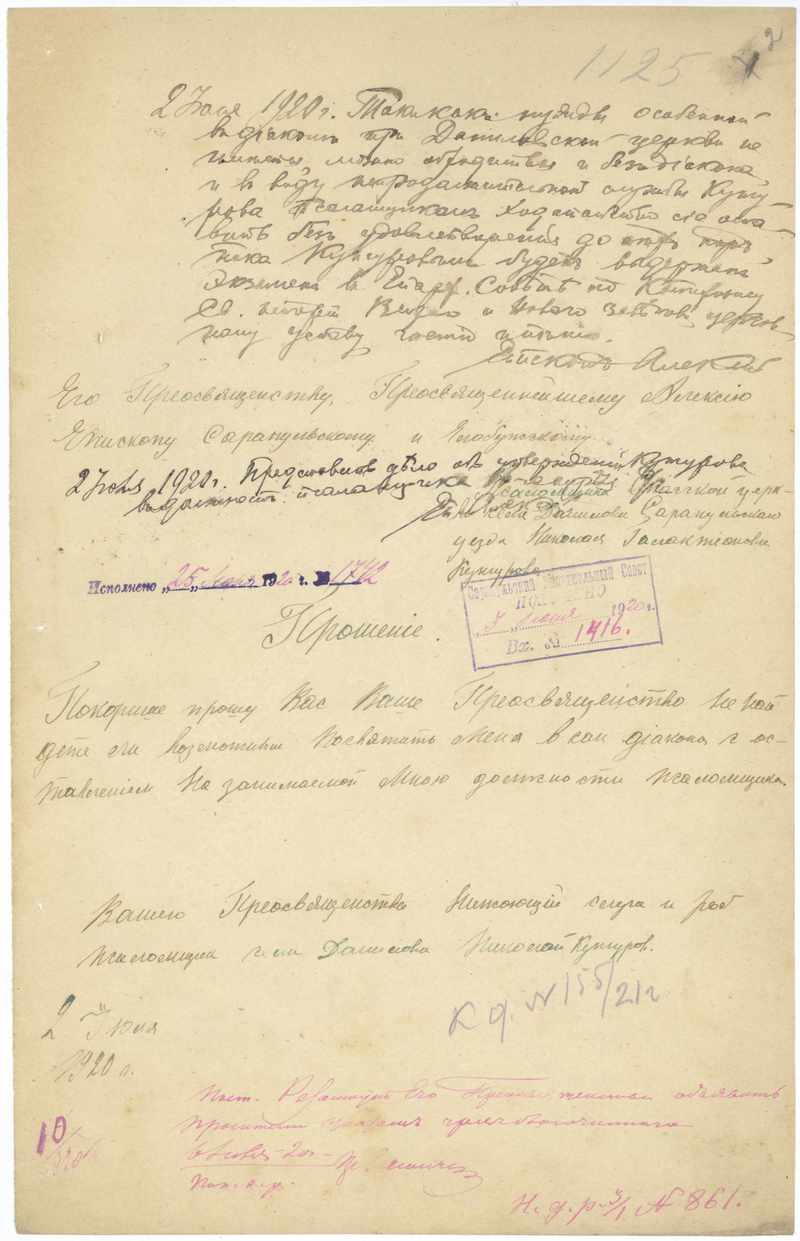 1125
2
2 Іюня 1920 г. Такъ какъ нужды особенной
въ діаконѣ при Даниловской церкви не
имѣется можно обходиться и безъ діакона
и въ виду непродолжительной службы Кунгу-
рова псаломщикомъ ходатайство его оста-
вить безъ удовлетворенія до тѣхъ поръ
пока Кунгуровымъ будетъ выдержанъ
экзаменъ въ Епарх. Совѣтѣ по Катихизису
Св. исторіи Ветхо и Новаго Завѣтовъ, церков-
ному уставу чтенію и пѣнію.
Епископъ Алексій
Его Преосвященству, Преосвященнѣйшему Алексію
Епископу Сарапульскому и Елабужскому
2 Іюня 1920 г. Представить дѣло объ утвержденіи Кунгурова
въ должность псаломщика
Псаломщика церк-
Епископъ Данилова Сарапульскаго
уезда Николая Галактіонова
Кунгурова
Исполнено „25" Іюня 1920 г. № 1742
Сарапульский Епархіальный Совет
ПОЛУЧЕНО
„5" Іюня 1920 г.
Вх. № 1416.
Прошеніе.
Покорнѣе прошу Вас Ваше Преосвященство не най
дете ли возможным посвятить меня в сан діакона с ос-
тавленіем на занимаемой мною должности псаломщика.
Вашего Преосвященства нижающій слуга и раб
псаломщик села Данилова Николай Кунгуров.
К д. № 155/21 г
2 Іюня
1920 г.
10
Резолюцію Его объявить
просителю чрез благочиннаго
6 Іюня 20 г.
Н. д. р. № 861.